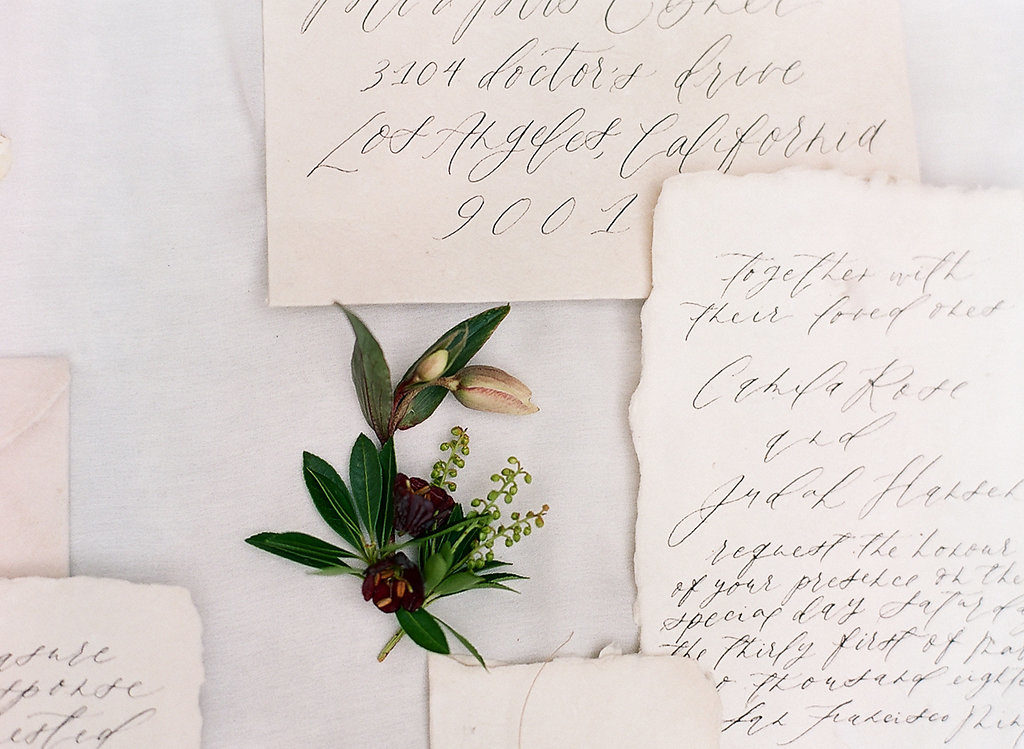 3104 doctor's drive
Los Angeles, California
9001
together with
their loved ones
Camila Rose
and
Judah Hansen
request the honour
of your presence on the
special day saturda
the thirly first of mar
o thousand eighte
san francisco
asure
sponse
ested